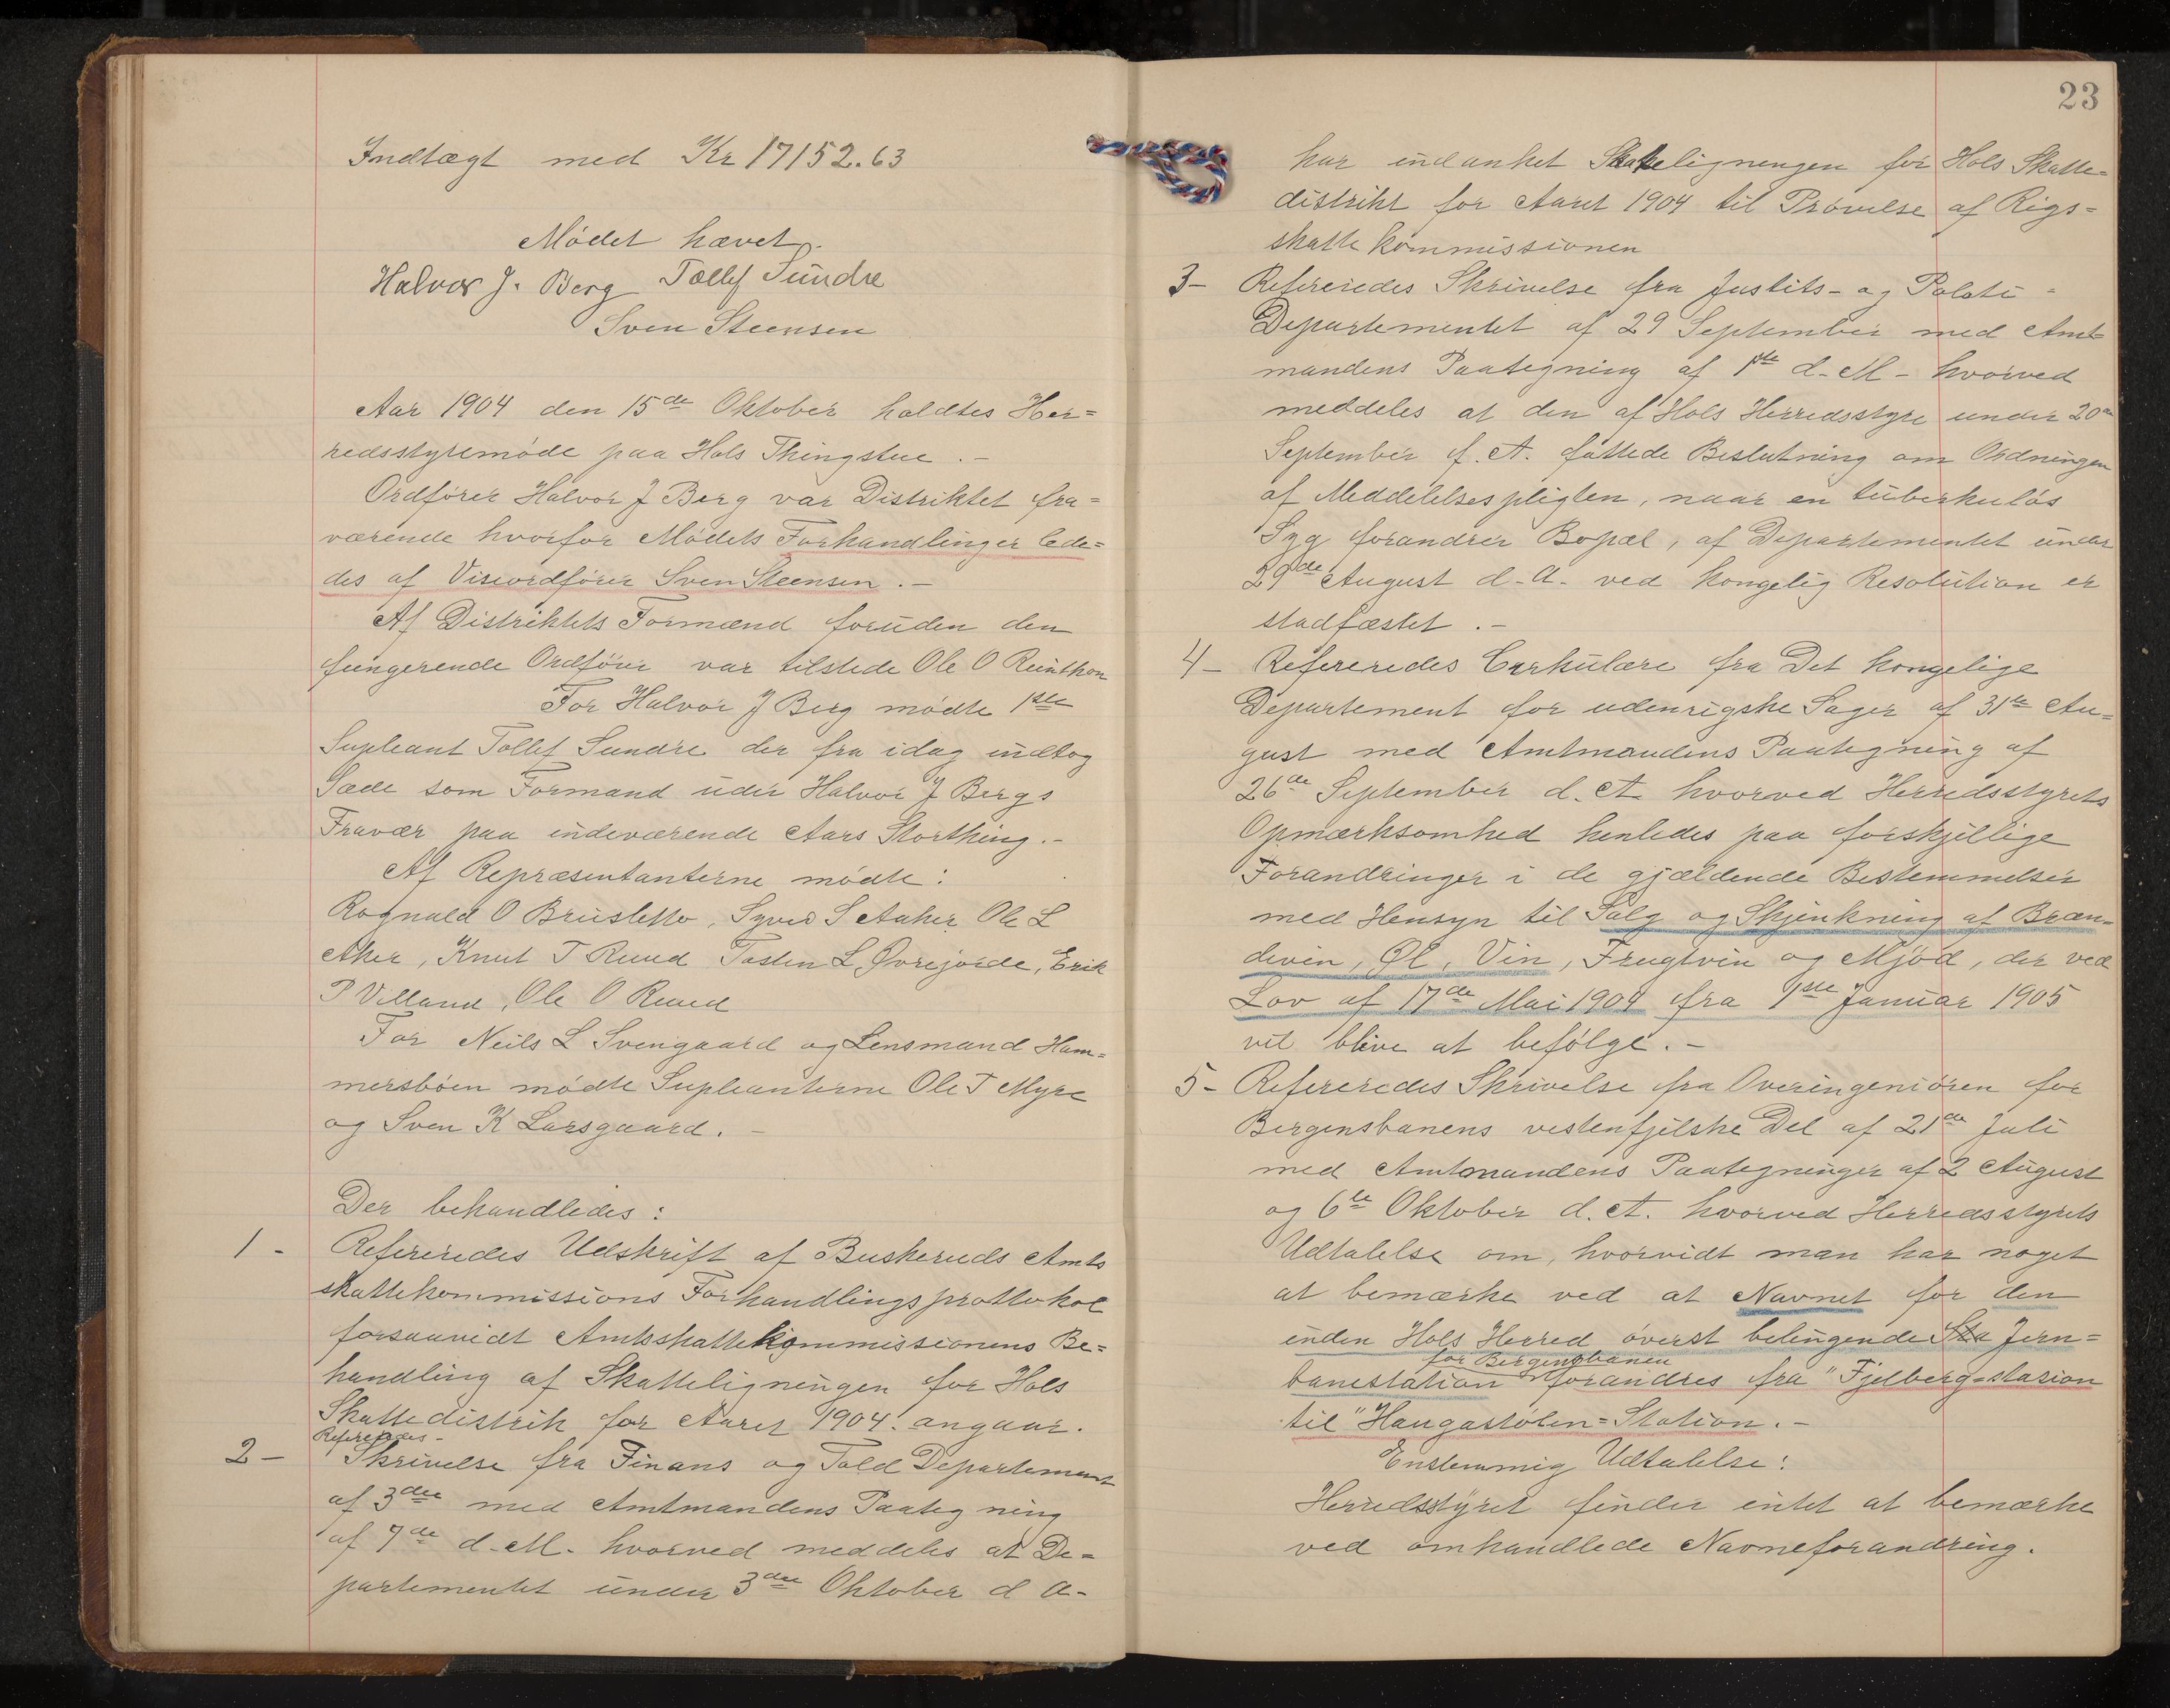 Indtægt med Kr 17152.63
Mødet hævet.
Halvor J. Berg Tollef Sundre
Sven Steensen
Aar 1904 den 15de Oktober holdtes Her=
redsstyremøde paa Hols Thingstue. -
Ordfører Halvor J Berg var Distriktet fra=
værende hvorfor Mødets Forhandlinger lede=
des af Viseordfører Sven Steensen. -
Af Distriktets Formænd foruden den
fungerende Ordfører var tilstede Ole O
For Halvor J Berg mødte 1ste
Supleant Tollef Sundre der fra idag indtog
Sæde som Formand under Halvor J Bergs
Fravær paa indeværende Aars Storthing. -
Af Repræsentanterne mødte:
Rognald O Brusletto, S Aaker Ole L
Aker, Knut T Ruud Tosten L Øvrejorde, Erik
P Villand, Ole O Ruud
For Neils L Svengaard og Lensmand Ham=
mersbøen mødte Supleanterne Ole T Myre
og Sven K Larsgaard. -
Der behandledes:
1 - Refereredes Udskrift af Buskeruds Amts
skattekommissions Forhandlingsprottokol
forsaavidt Amtsskattekommissionens Be=
handling af Skatteligningen for Hols
Skattedistrik for Aaret 1904. angaar.
Refereredes -
2 - Skrivelse fra Finans og Told Departement
af 3die med Amtmandens Paategning
af 7de d. M. hvorved meddeles at De=
partementet under 3die Oktober d A-
23
har indanket Skatteligningen for Hols Skatte=
distrikt for Aaret 1904 til Prøvelse af Rigs=
skattekommissionen
3 - Refereredes Skrivelse fra Justits- og Politi-
Departementet af 29 September med Amt=
mandens Paategning af 1ste d. M - hvorved
meddeles at den af Hols Herredsstyre under 20de
September f. A. fattede Beslutning om Ordningen
af Meddelelsespligten, naar en tuberkuløs
Syg forandrer Bopæl, af Departementet under
29de August d. A. ved kongelig Resolution er
stadfæstet. -
4 - Refereredes Cirkulære fra Det kongelige
Departement for udenrigske Sager af 31te Au=
gust med Amtmandens Paategning af
26de September d. A. hvorved Herredsstyrets
Opmærksomhed henledes paa forskjellige
Forandringer i de gjældende Bestemmelser
med Hensyn til Salg og Skjenkning af Bræn=
devin, Øl, Vin, Frugtvin og Mjød, der ved
Lov af 17de Mai 1904 fra 1ste Januar 1905
vil blive at befølge. -
5 - Refereredes Skrivelse fra Overingeniøren for
Bergensbanens vestenfjelske Del af 21de Juli
med Amtmandens Paategninger af 2 August
og 6te Oktober d. A. hvorved Herredsstyrets
Udtalelse om, hvorvidt man har noget
at bemærke ved at Navnet for den
inden Hols Herred øverst beliggende Sta Jern=
for Bergensbanen
banestation forandres fra "Fjelberg-stasion
til "Haugastølen=Station. -
Enstemmig Udtalelse:
Herredsstyret finder intet at bemærke
ved omhandlede Navneforandring.